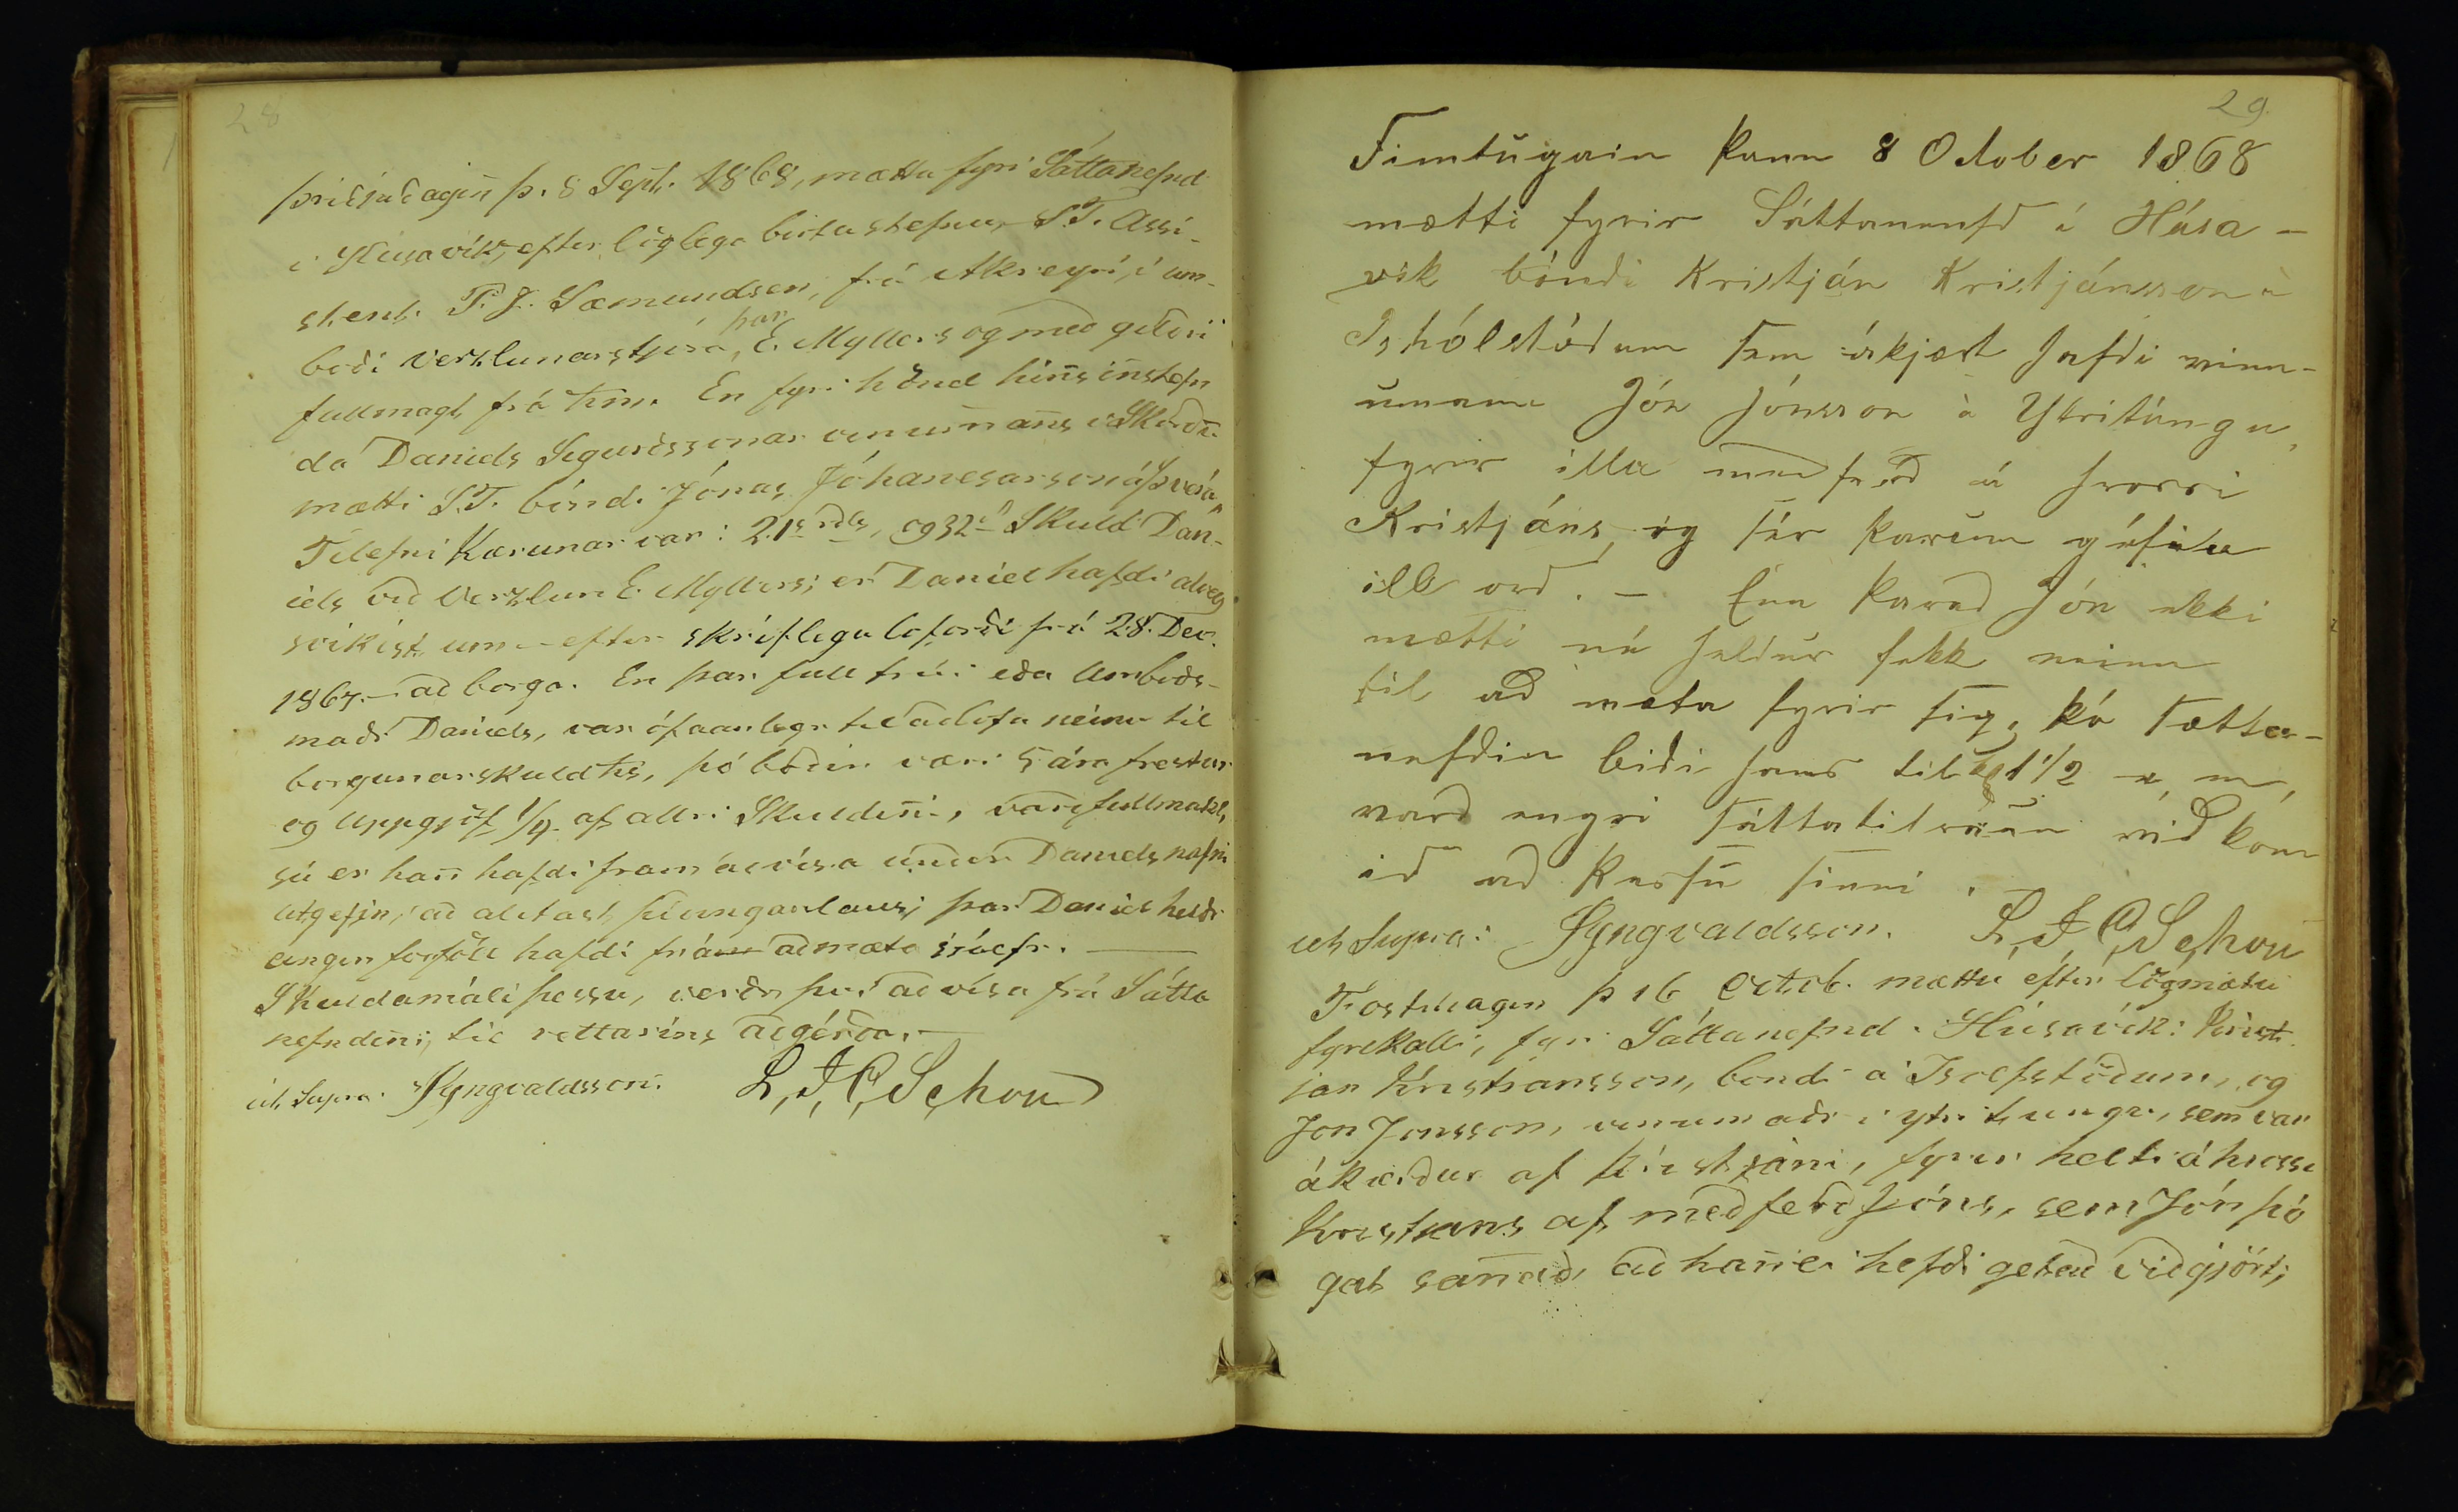 28
þriðjudagin̄ þ. 8 Sept. 1868, mættu fyri Sáttanefnd
i Húsavík, eftir löglega birta stefnu, S.T. Assi-
stent. P. J. Sæmundsen, frá Akreyri, í um-
boði verzlunarstjóra, þar E. Möllers og með gildri
fullmagt frá hm. En fyri hönd hin̄s in̄stefn
da Daníels Sigurðssonar vinnuman̄s i Skörðū
mætti S.T. bóndi Jónas Jóhanesarson á Þverá,
Tilefni Kærunar var: 21s rdls, og 32 s Skuld Dan-
iels við Verzlun E. Möllers; er Daniel hafdi alveg
svikist um – eftir skriflegu loforði frá 28. Dec.
1867. – að borga. En þar fulltrúi eða Umboðs-
maðr Daniels, var ófáanlegr til að lofa neinu til
borgunar skuld hs, þó boðin væri 5 ára frestur
og Uppgjöf 1/4 af allri Skuldin̄i, varð fullmakt,
sú er han̄ hafdi fram að vísa undir Daniels nafni
útgefin, að álítast þíðingarlaus; þar Daniel heldr
engin forföll hafdi frá að mæta sjálfr. —
Skuldamáli þessu, verðr því að vísa frá Sátta
nefndin̄i, til réttarins aðgérða. —
ut Supra. SYngvaldsson. L, J, C, Schou
29
Fimtúgain Þann 8 October 1868
mætti fyrir Sáttanenfd í Húsa-
vik bóndi Kristján Kristjánsson á
Ishólstödum sem ákjært hafdi vinn-
umann Jón Jónsson á Ytritúngu,
fyrir illa medferd á hrossi
Kristjáns, og sér þarūm géfin
ill ord. – Enn Þared Jón ekki
mætti né heldur fekk neinn
til ad mæta fyrir sig, þó sætta-
nefdin bidi hans til kl 1 1/2 e, m,
vard engri sáttatilraun vid kom
id ad Þessū sinni.
ut Supra: SYngvaldsson. L, J, C, Schou
Föstudagin þ 16 Octob. mættu eftir lögmætu
fyrikalli, fyri Sáttanefnd i Húsavík: Krist
ján Kristjansson, bondi á Isolfstöðum, og
Jon Jonsson, vinumaðr i ytri tungu, sem var
ákærdur af Kristjáni, fyrir helti á hrossi
Kristjans af medferd Jóns, sem Jón þó
gat san̄að, að han̄ ei hefði getað við gjört;